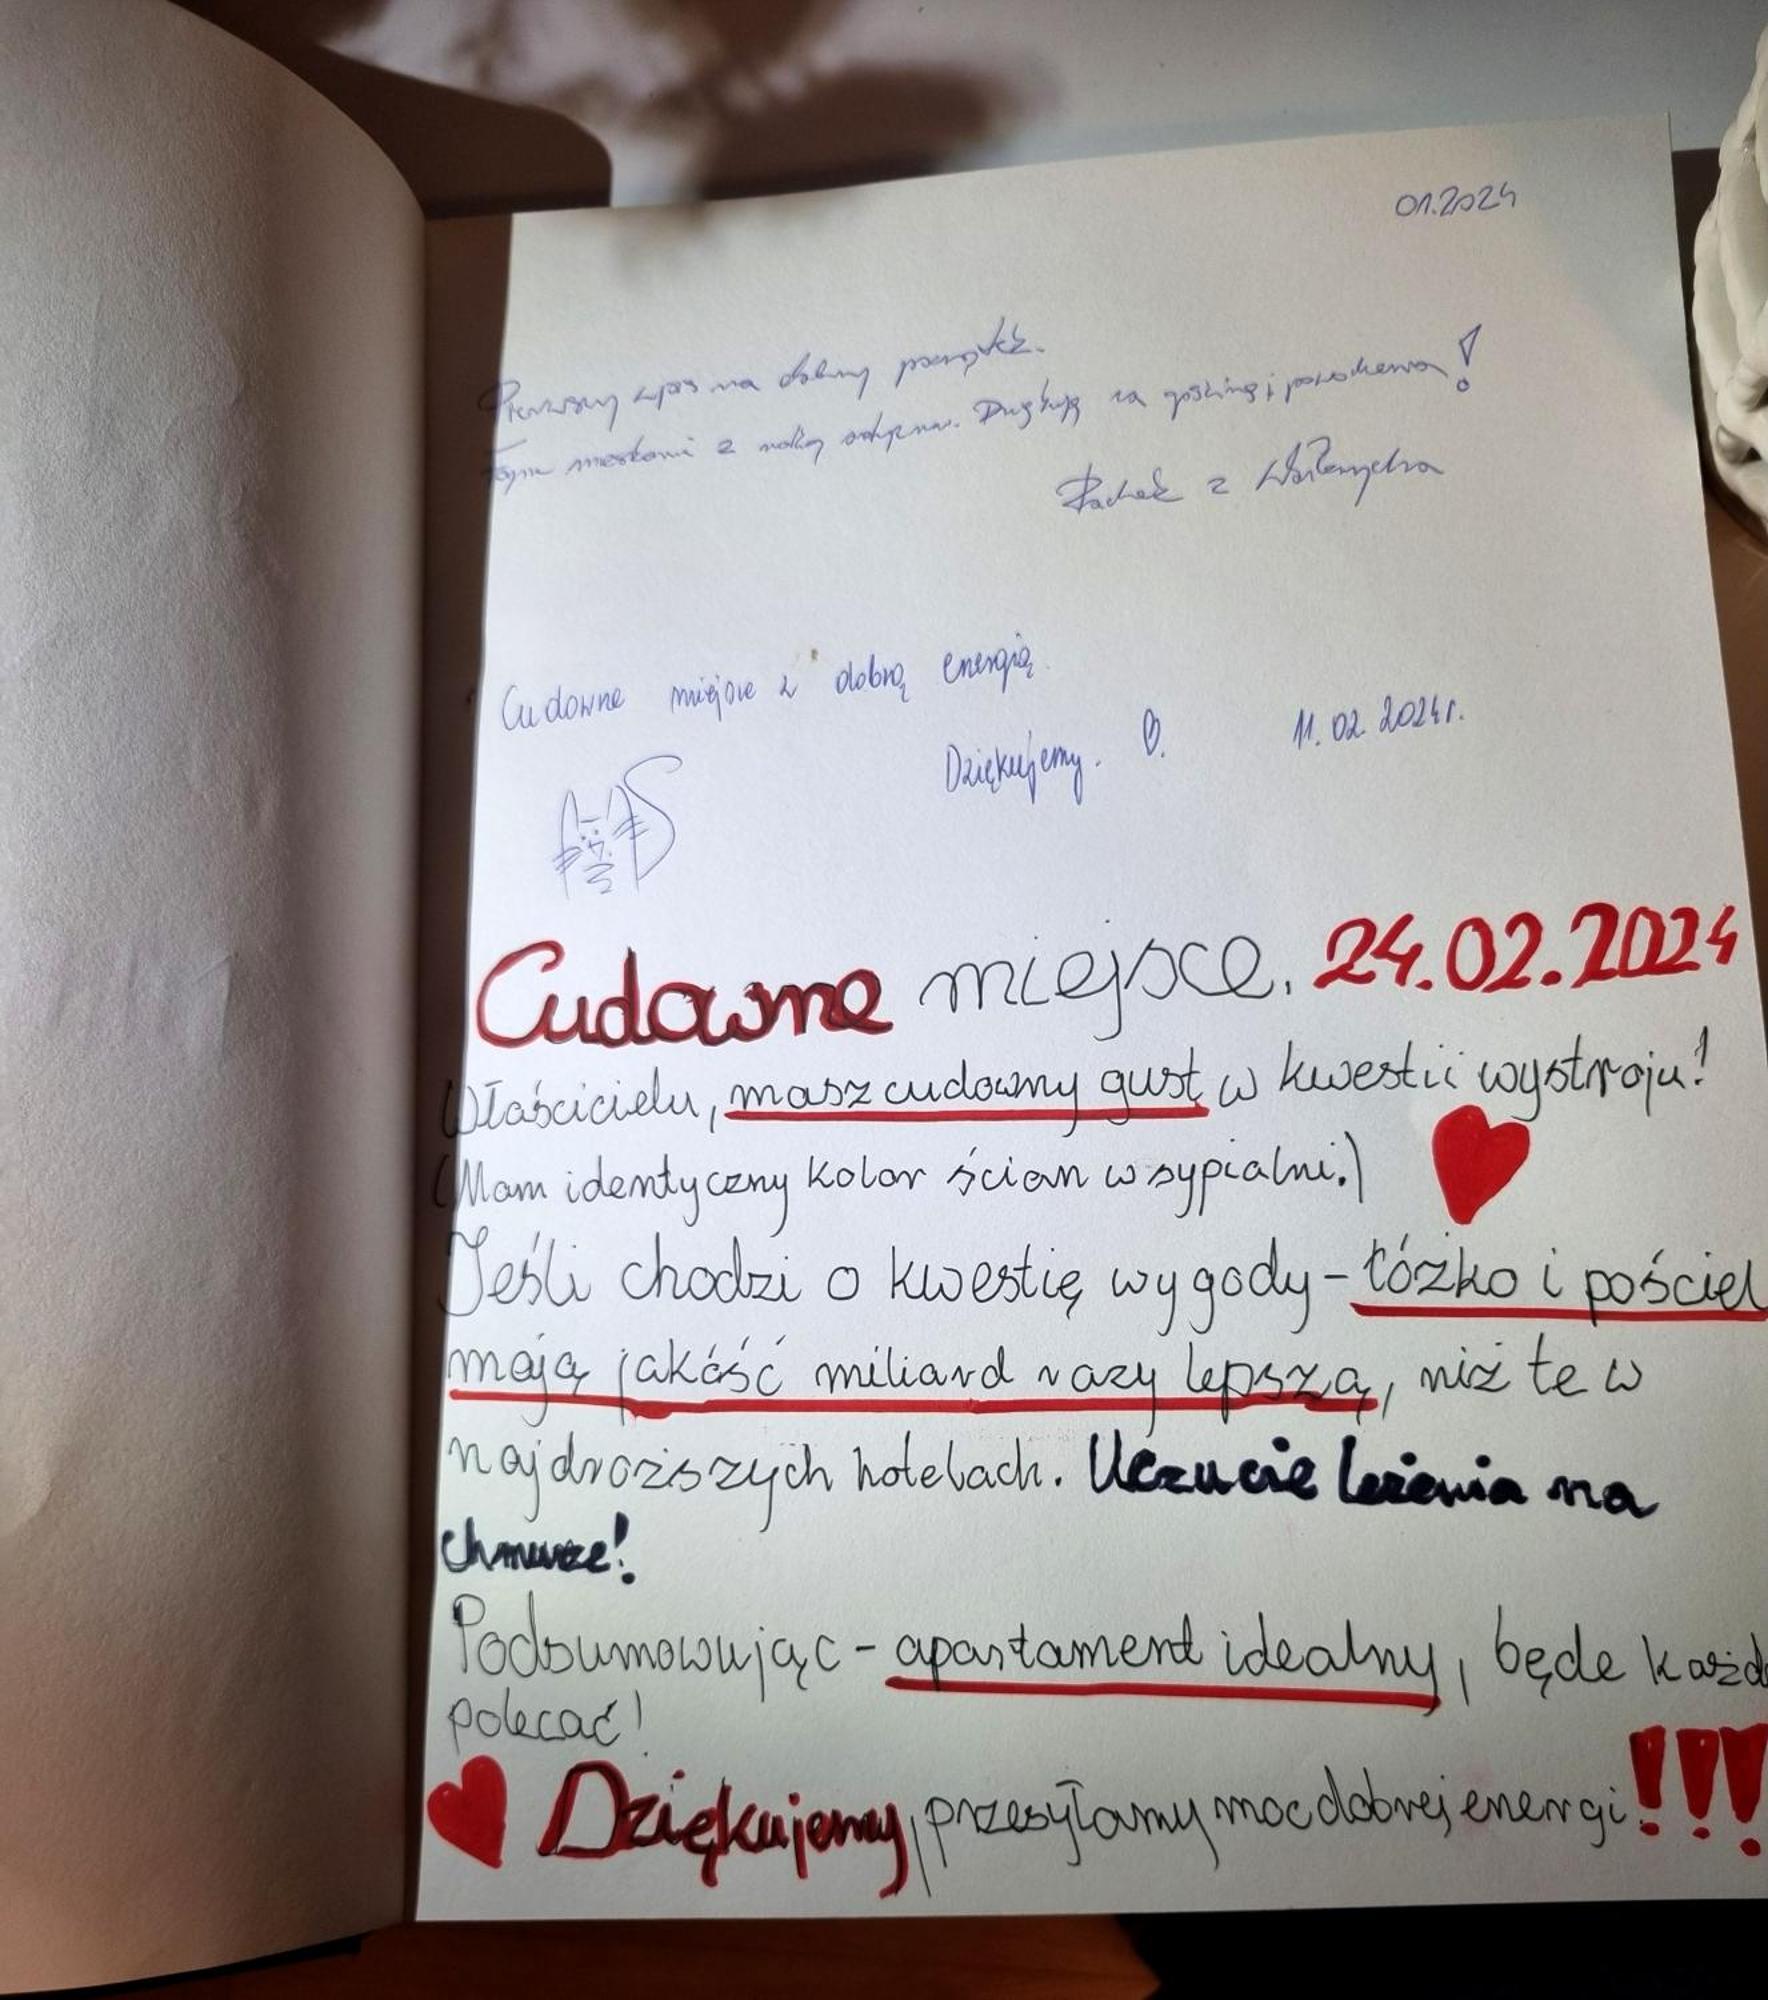 01.2024
Pierwszy wpis na dobry początek.
Fajne z za gościnę i
z
Cudowne miejsce z dobrą energią.
Dziękujemy. 11.02.2024r.
Cudowne miejsce. 24.02.2024
Właścicielu, masz cudowny gust w kwestii wystroju!
(Mam identyczny kolor ścian w sypialni.)
Jeśli chodzi o kwestię wygody - łóżko i pościel
mają jakość miliard razy lepszą, niż te w
najdrozszych hotelach. Uczucie leżenia na
chmurze!
Podsumowując - apartament idealny, będe każd
polecać!
Dziękujemy, przesyłamy moc dobrej energi!!!